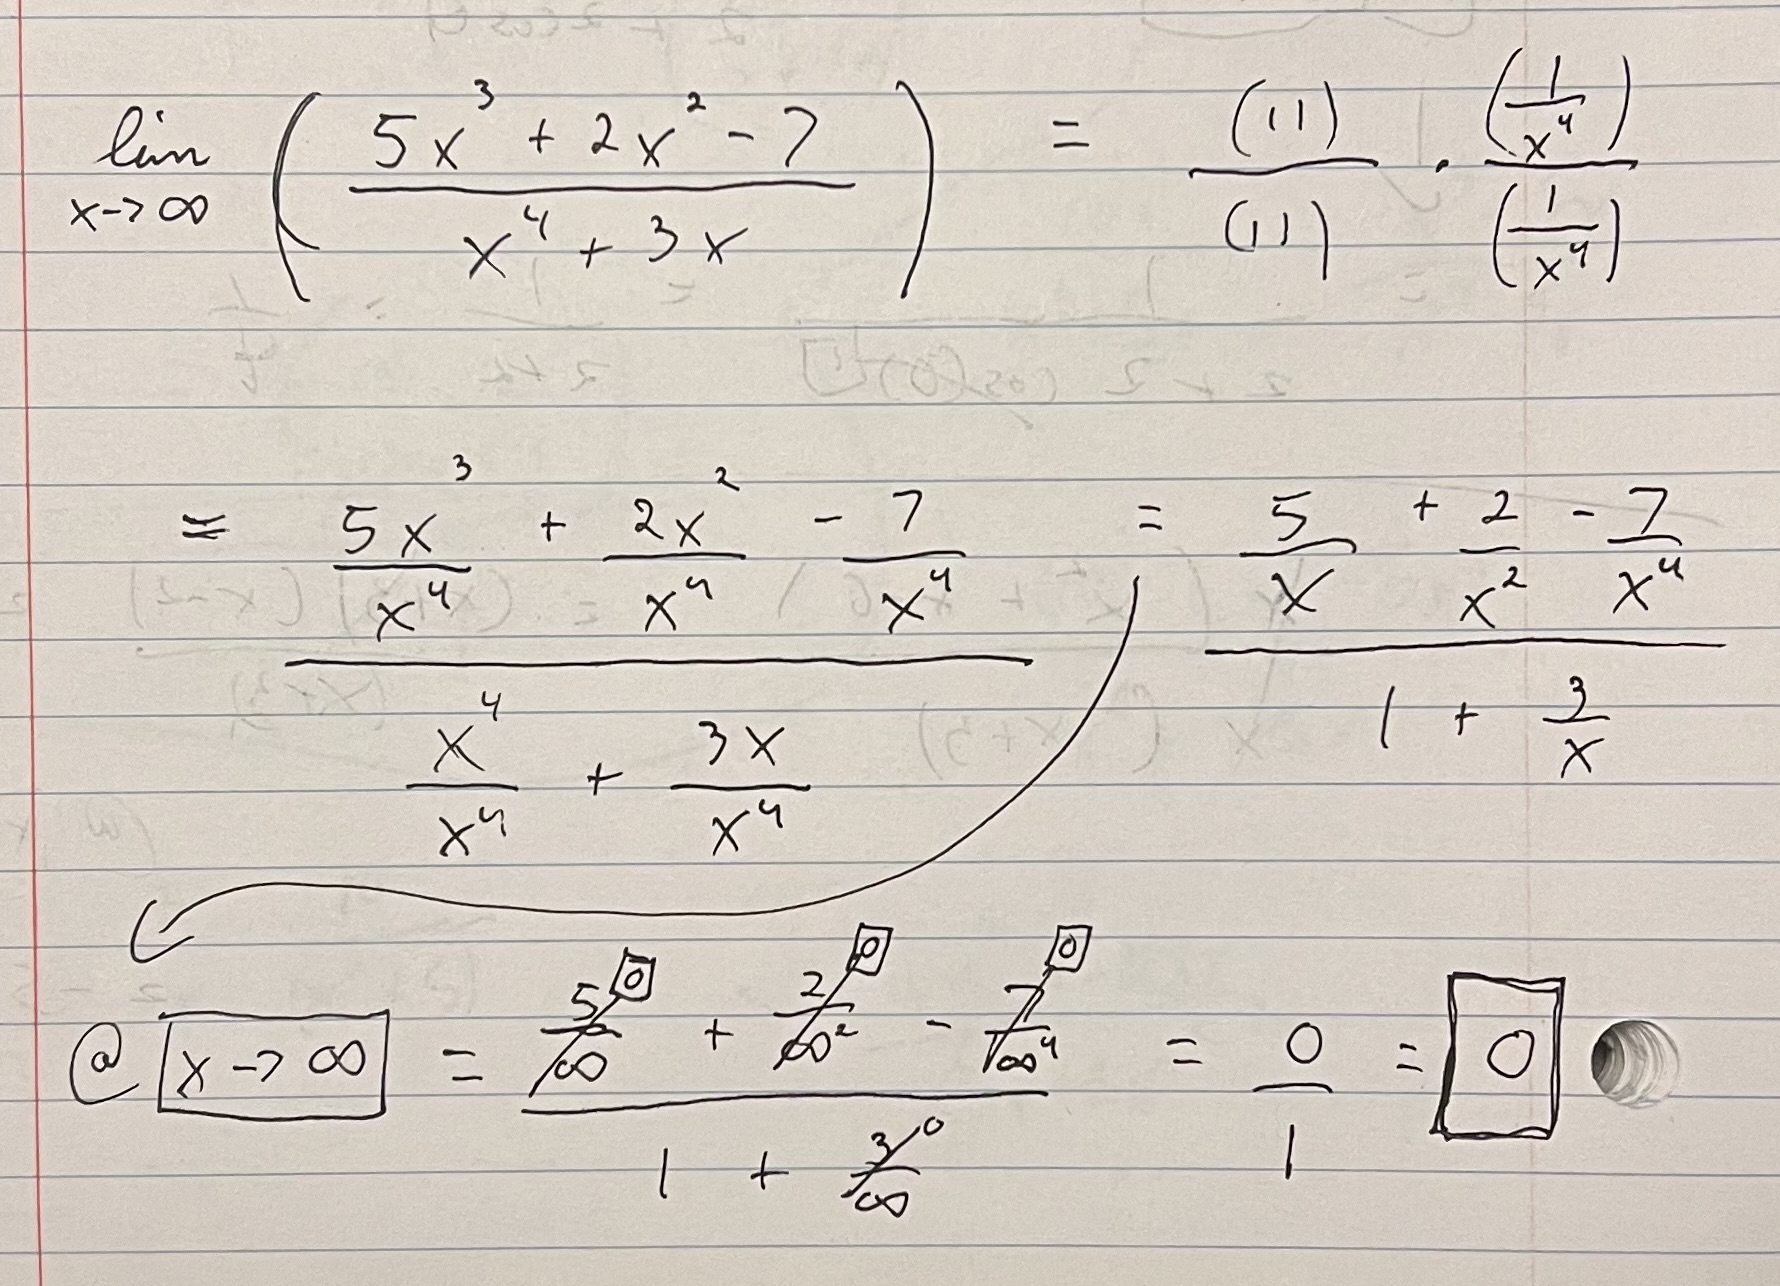 lim x→∞ ( (5x³ + 2x² - 7) / (x⁴ + 3x) ) = (11)/(11) · (1/x⁴)/(1/x⁴)
= (5x³/x⁴ + 2x²/x⁴ - 7/x⁴) / (x⁴/x⁴ + 3x/x⁴) = (5/x + 2/x² - 7/x⁴) / (1 + 3/x)
@ x→∞ = (5/∞ 0 + 2/∞² 0 - 7/∞⁴ 0) / (1 + 3/∞ 0) = 0/1 = 0